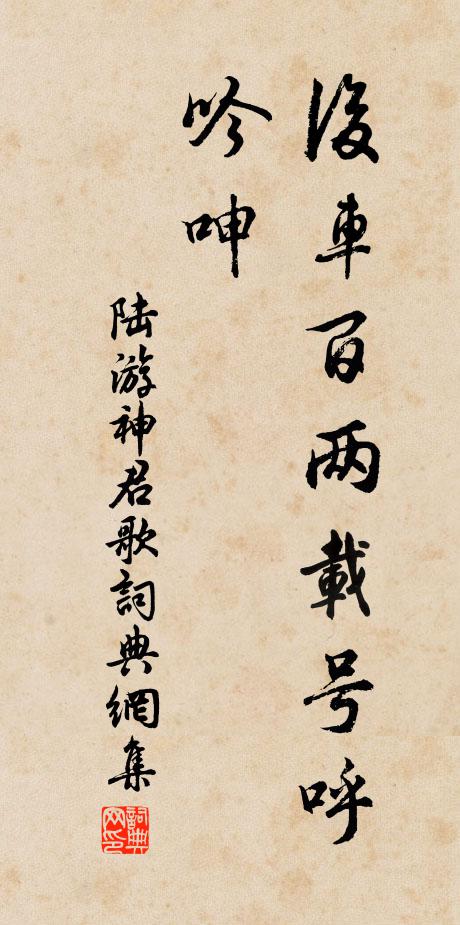 後車百两載号呼
吟呻
陆游神君歌詞典網集
詞典网印